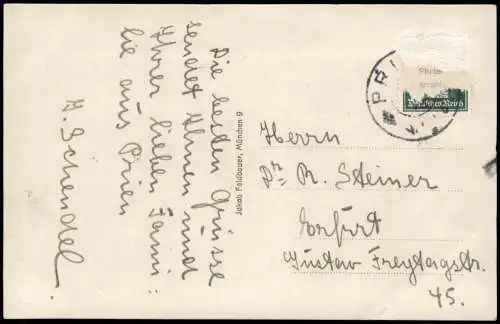 Die besten Grüsse
sendet Ihnen und
Ihrer lieben Fami=
lie aus Prien
H. Schendel.
Jakob Feldbauer, München 9
PRI
Deutsches Reich
Herrn
Dr. R. Steiner
Erfurt
Gustav Freytagstr.
45.